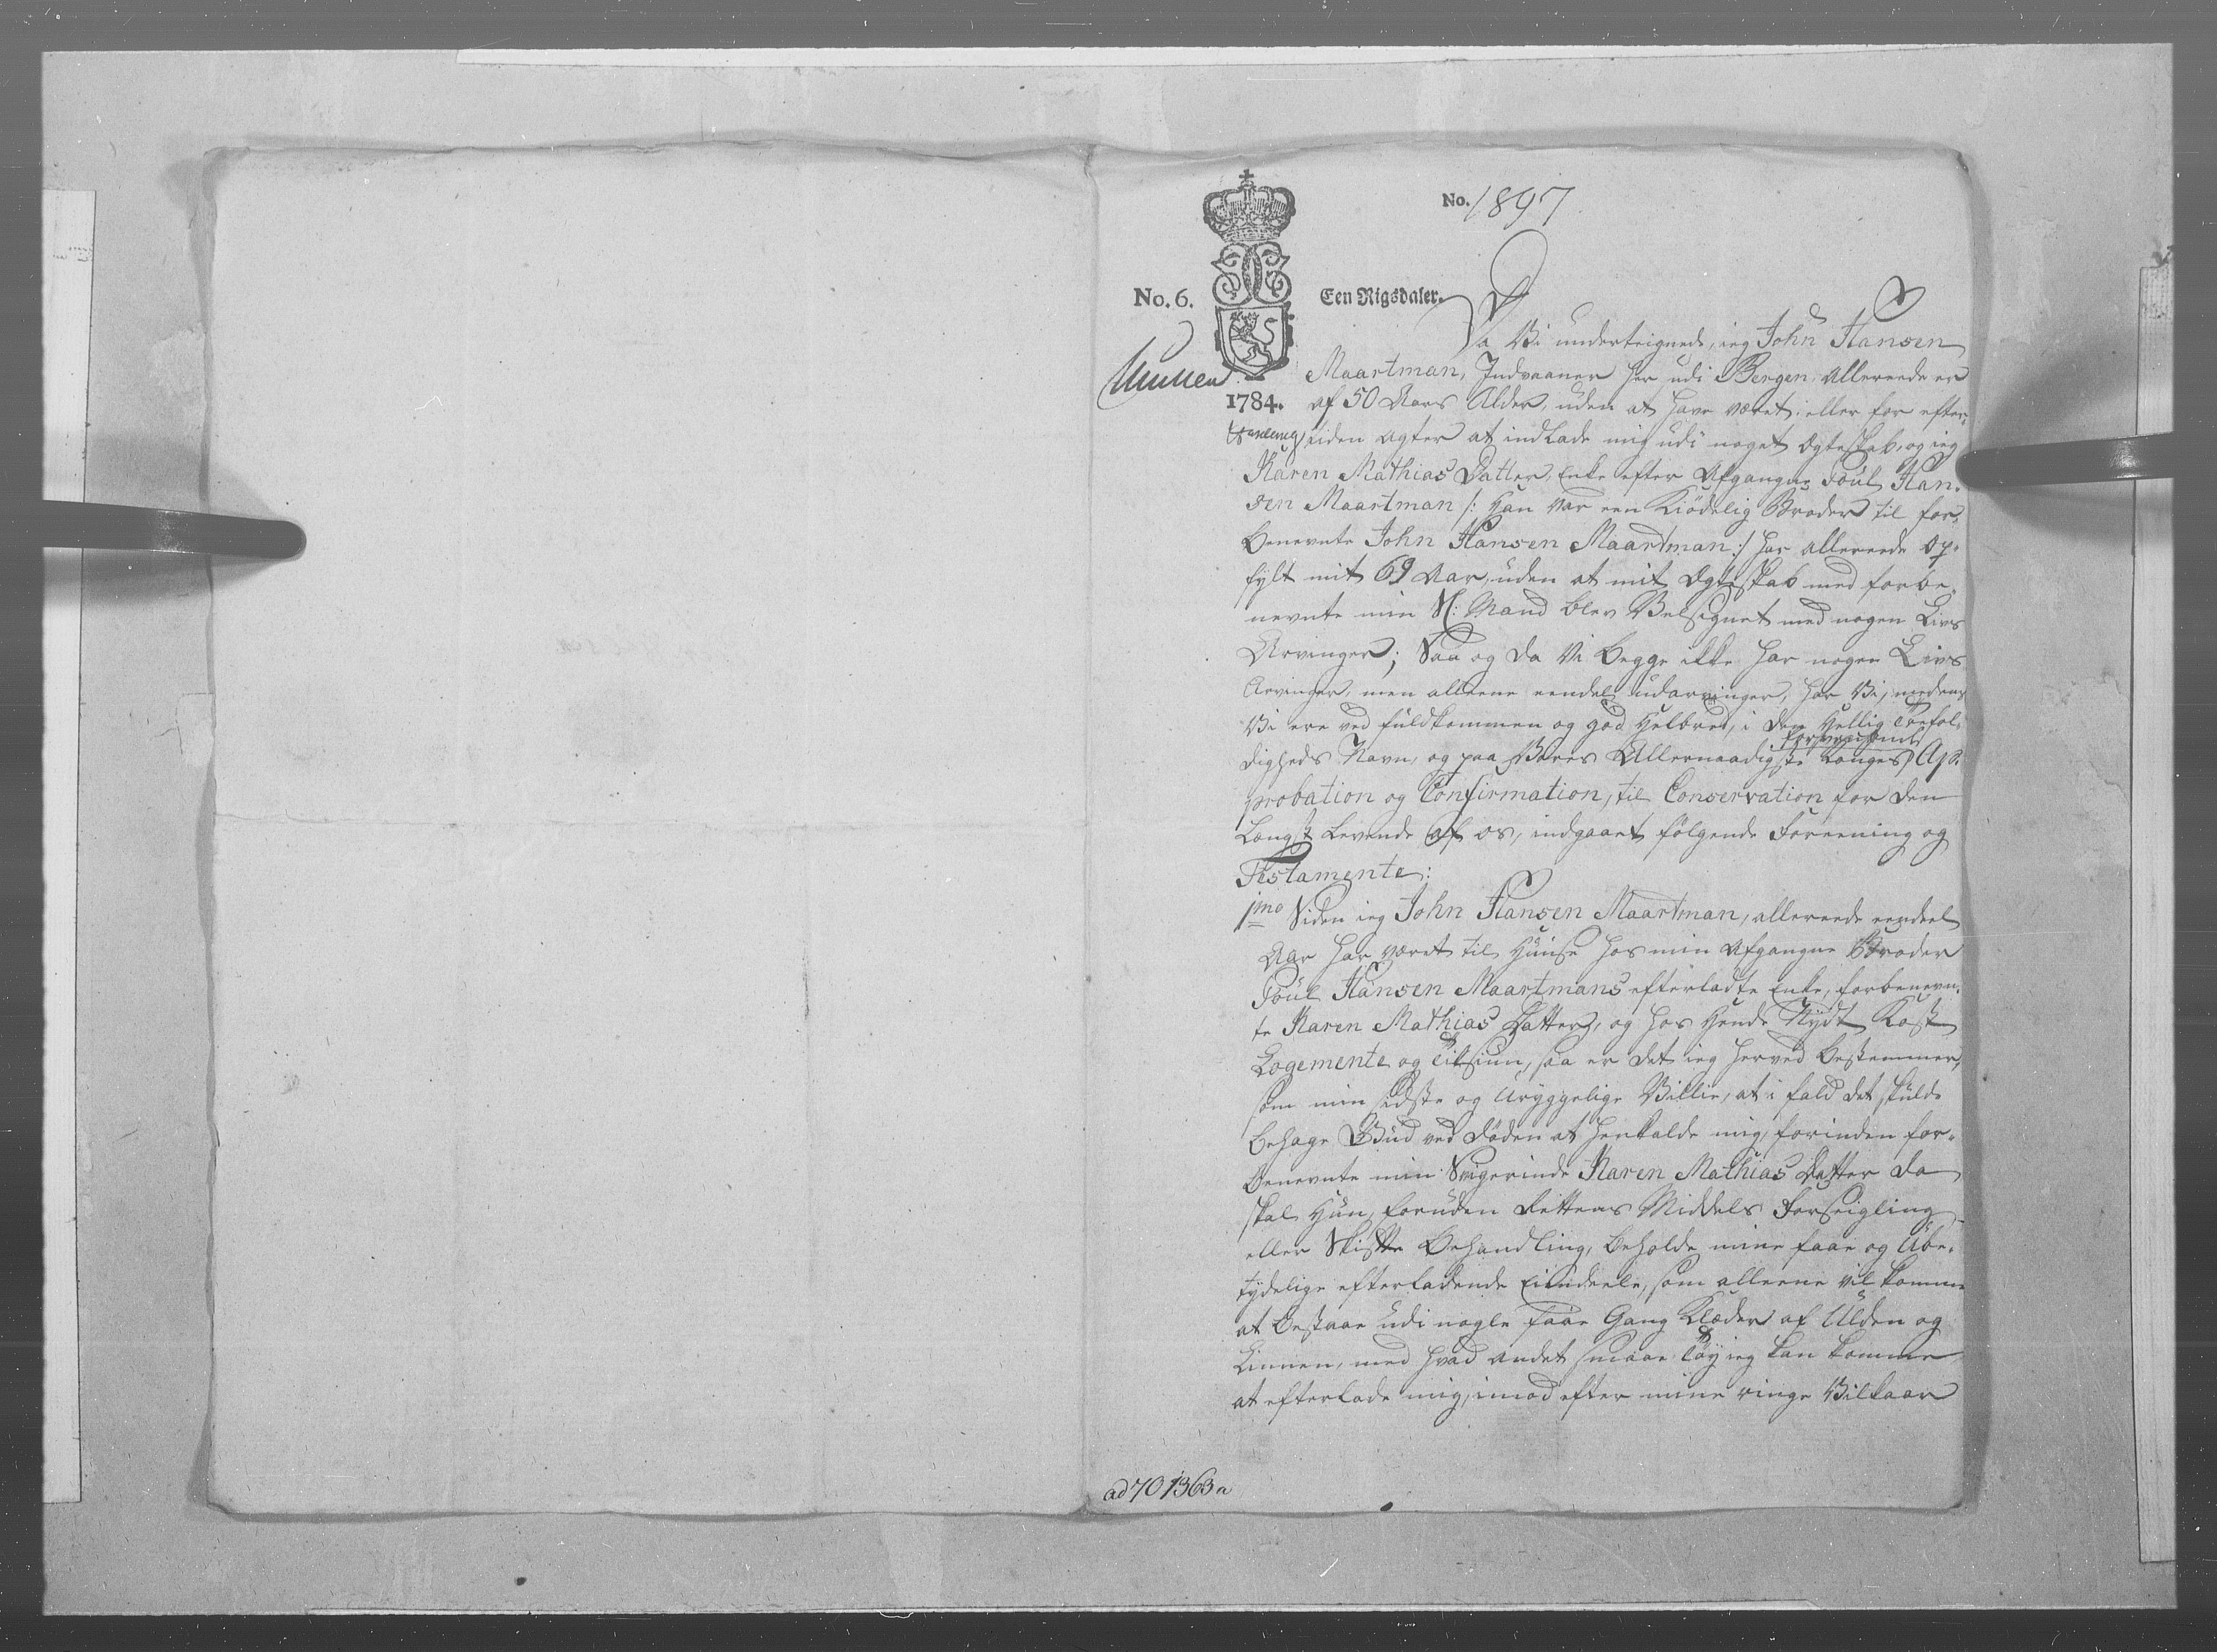 No. 1897
No. 6.
Een Rigsdaler.
1784.
Da Vi underteignede, ieg John Hansen
Maartman, Indvaaner her udi Bergen, allereede er
af 50 Aars Alder, uden at have været i eller for efter-
tiden agter at indlade mig udi noget Egteskab, og ieg
Karen Mathias Datter, Enke efter Afgangne Poul Han-
sen Maartman /: Han var een Kiödelig Broder til for-
benevnte John Hansen Maartman :/ har allereede op-
fylt mit 69 Aar, uden at mit Egteskab med forbe-
nevnte min S: Mand blev Velsignet med nogen Livs
Arvinger; Saa og da Vi begge ikke har nogen Livs
Arvinger, men alleene eendel udarvinger, har Vi, medens
Vi ere ved fuldkommen og god Helbred, i den Hellig Trefol-
digheds Navn, og paa Vores Allernaadigste Konges Ap-
probation og Confirmation, til Conservation for den
Længst Levende af os, indgaaet følgende Foreening og
Testamente:
1mo Siden ieg John Hansen Maartman, allereede eendeel
Aar har været til Huuse hos min Afgangne Broder
Poul Hansen Maartmans efterladte Enke, forbenevn-
te Karen Mathias Datter, og hos Hende Nydt Kost
Logemente og Tilsiun, saa er det ieg herved bestemmer,
som min sidste og Uryggelige Villie, at i fald det skulde
behage Gud ved døden at henkalde mig, forinden for-
benevnte min Svigerinde Karen Mathias Datter da
skal Hun, foruden Rettens Middels Forseigling
eller Skifte Behandling, beholde mine faae og Ube-
tydelige efterladende Eiendeele, som alleene vil komme
at bestaae udi nogle faae Gang Klæder af Ulden og
Linnen, med hvad andet smaae Tøy ieg kan komme
at efterlade mig, imod efter mine ringe Vilkaar
ad 701363 a